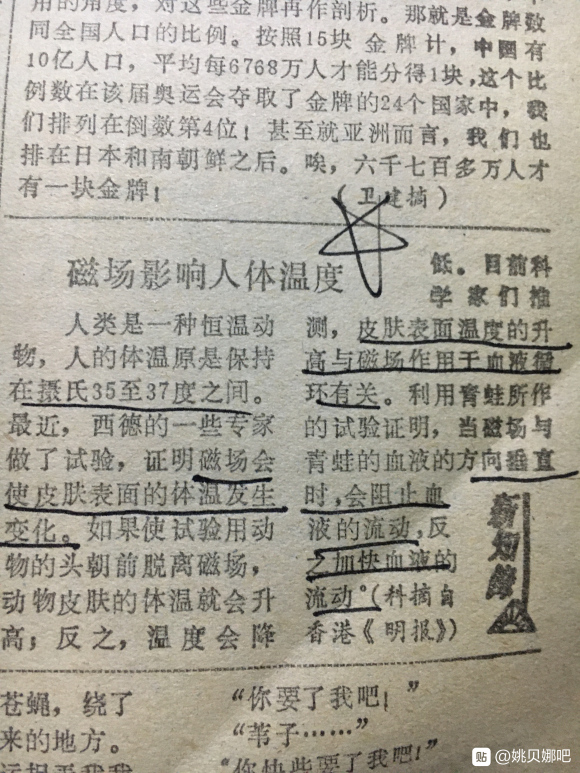 用的角度，对这些金牌再作剖析。那就是金牌数
同全国人口的比例。按照15块金牌计，中国有
10亿人口，平均每6768万人才能分得1块，这个比
例数在该届奥运会夺取了金牌的24个国家中，我
们排列在倒数第4位！甚至就亚洲而言，我们也
排在日本和南朝鲜之后。唉，六千七百多万人才
有一块金牌！（卫建摘）
磁场影响人体温度
人类是一种恒温动
物，人的体温原是保持
在摄氏35至37度之间。
最近，西德的一些专家
做了试验，证明磁场会
使皮肤表面的体温发生
变化。如果使试验用动
物的头朝前脱离磁场，
动物皮肤的体温就会升
高；反之，温度会降
低。目前科
学家们推
测，皮肤表面温度的升
高与磁场作用于血液循
环有关。利用青蛙所作
的试验证明，当磁场与
青蛙的血液的方向垂直
时，会阻止血
液的流动，反
之加快血液的
流动。（科摘自
香港《明报》）
新知
苍蝇，绕了
来的地方。
“你要了我吧！”
“苇子……”
“你快些要了我吧！”
贴 @姚贝娜吧